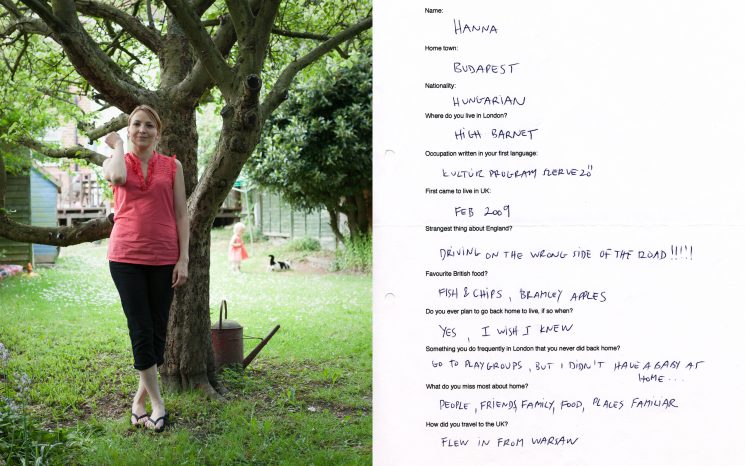 Name:
HANNA
Home town:
BUDAPEST
Nationality:
HUNGARIAN
Where do you live in London?
HIGH BARNET
Occupation written in your first language:
KULTÚR PROGRAM SZERVEZŐ
First came to live in UK:
FEB 2009
Strangest thing about England?
DRIVING ON THE WRONG SIDE OF THE ROAD!!!!!
Favourite British food?
FISH & CHIPS, BRAMLEY APPLES
Do you ever plan to go back home to live, if so when?
YES, I WISH I KNEW
Something you do frequently in London that you never did back home?
GO TO PLAYGROUPS, BUT I DIDN'T HAVE A BABY AT
HOME...
What do you miss most about home?
PEOPLE, FRIENDS, FAMILY, FOOD, PLACES FAMILIAR
How did you travel to the UK?
FLEW IN FROM WARSAW